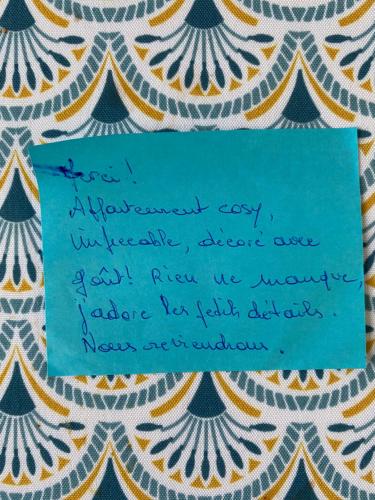 Merci!
Appartement cosy,
impeccable, décoré avec
goût! Rien ne manque,
j'adore les petits détails.
Nous reviendrons.